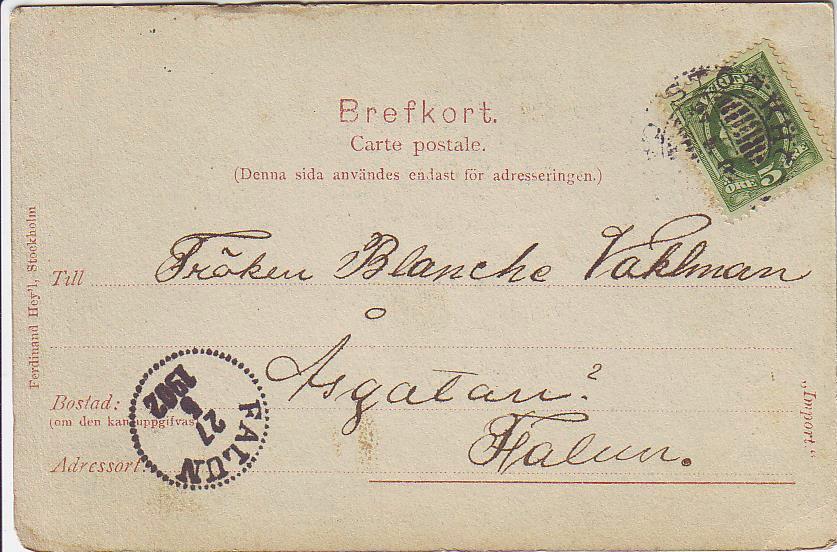 Brefkort.
Carte postale.
(Denna sida användes endast för adresseringen.)
ÖRE 5
Till Fröken Blanche Vahlman
Åsgatan?
Bostad:
(om den kan uppgifvas
Falun.
Adressort
FALUN
27
8
1902
Ferdinand Hey'l, Stockholm
„Import“